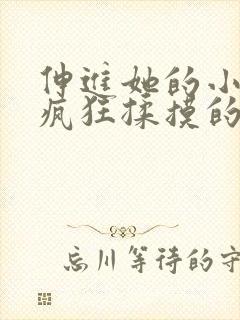 伸进她的小
疯狂揉摸的
忘川等待的守